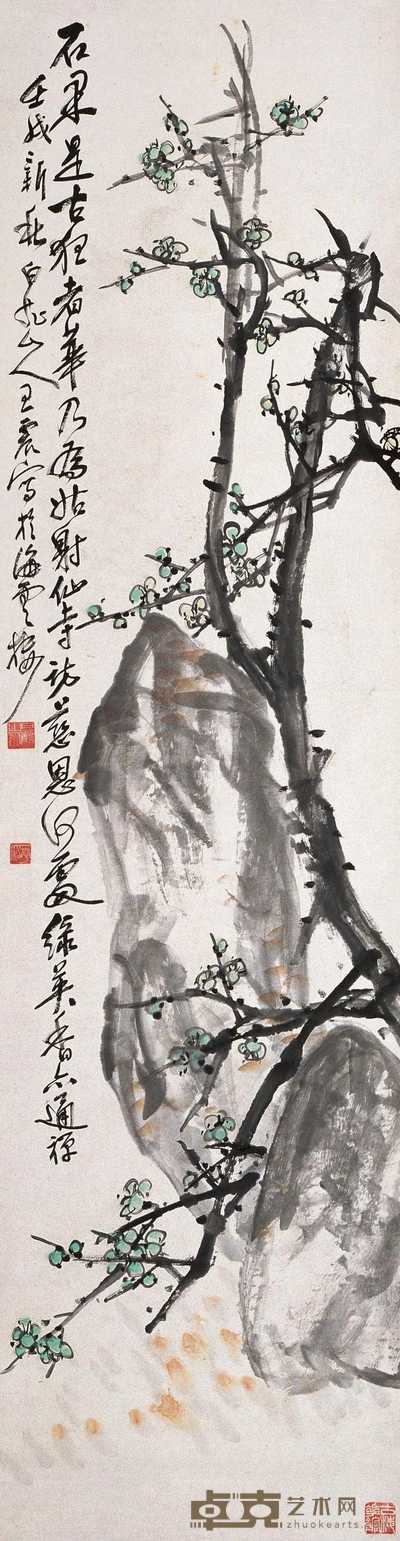 石果是古狂者華乃為姑射仙寺訪慈恩何處綠萼香亦通禪
壬戌新秋白龍山人王震寫於海雲樓
卓克艺术网
zhuokearts.com